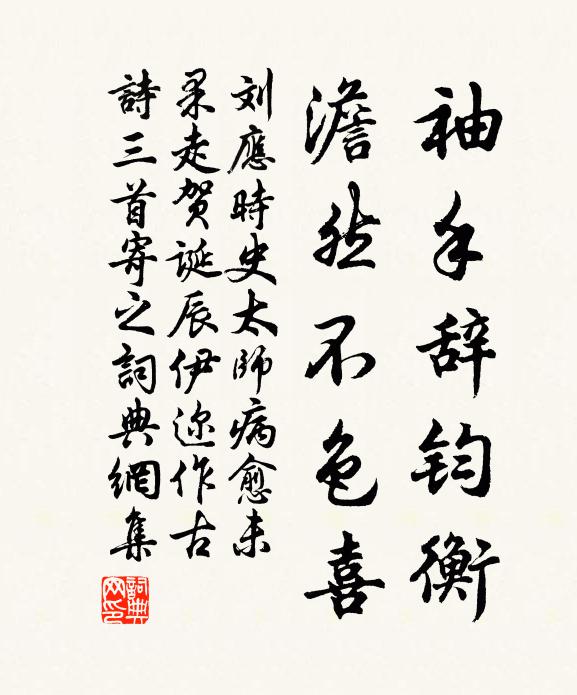 袖手辞钧衡
澹然不色喜
刘應時史太師病愈未
果走贺诞辰伊迩作古
詩三首寄之詞典網集
詞典網印